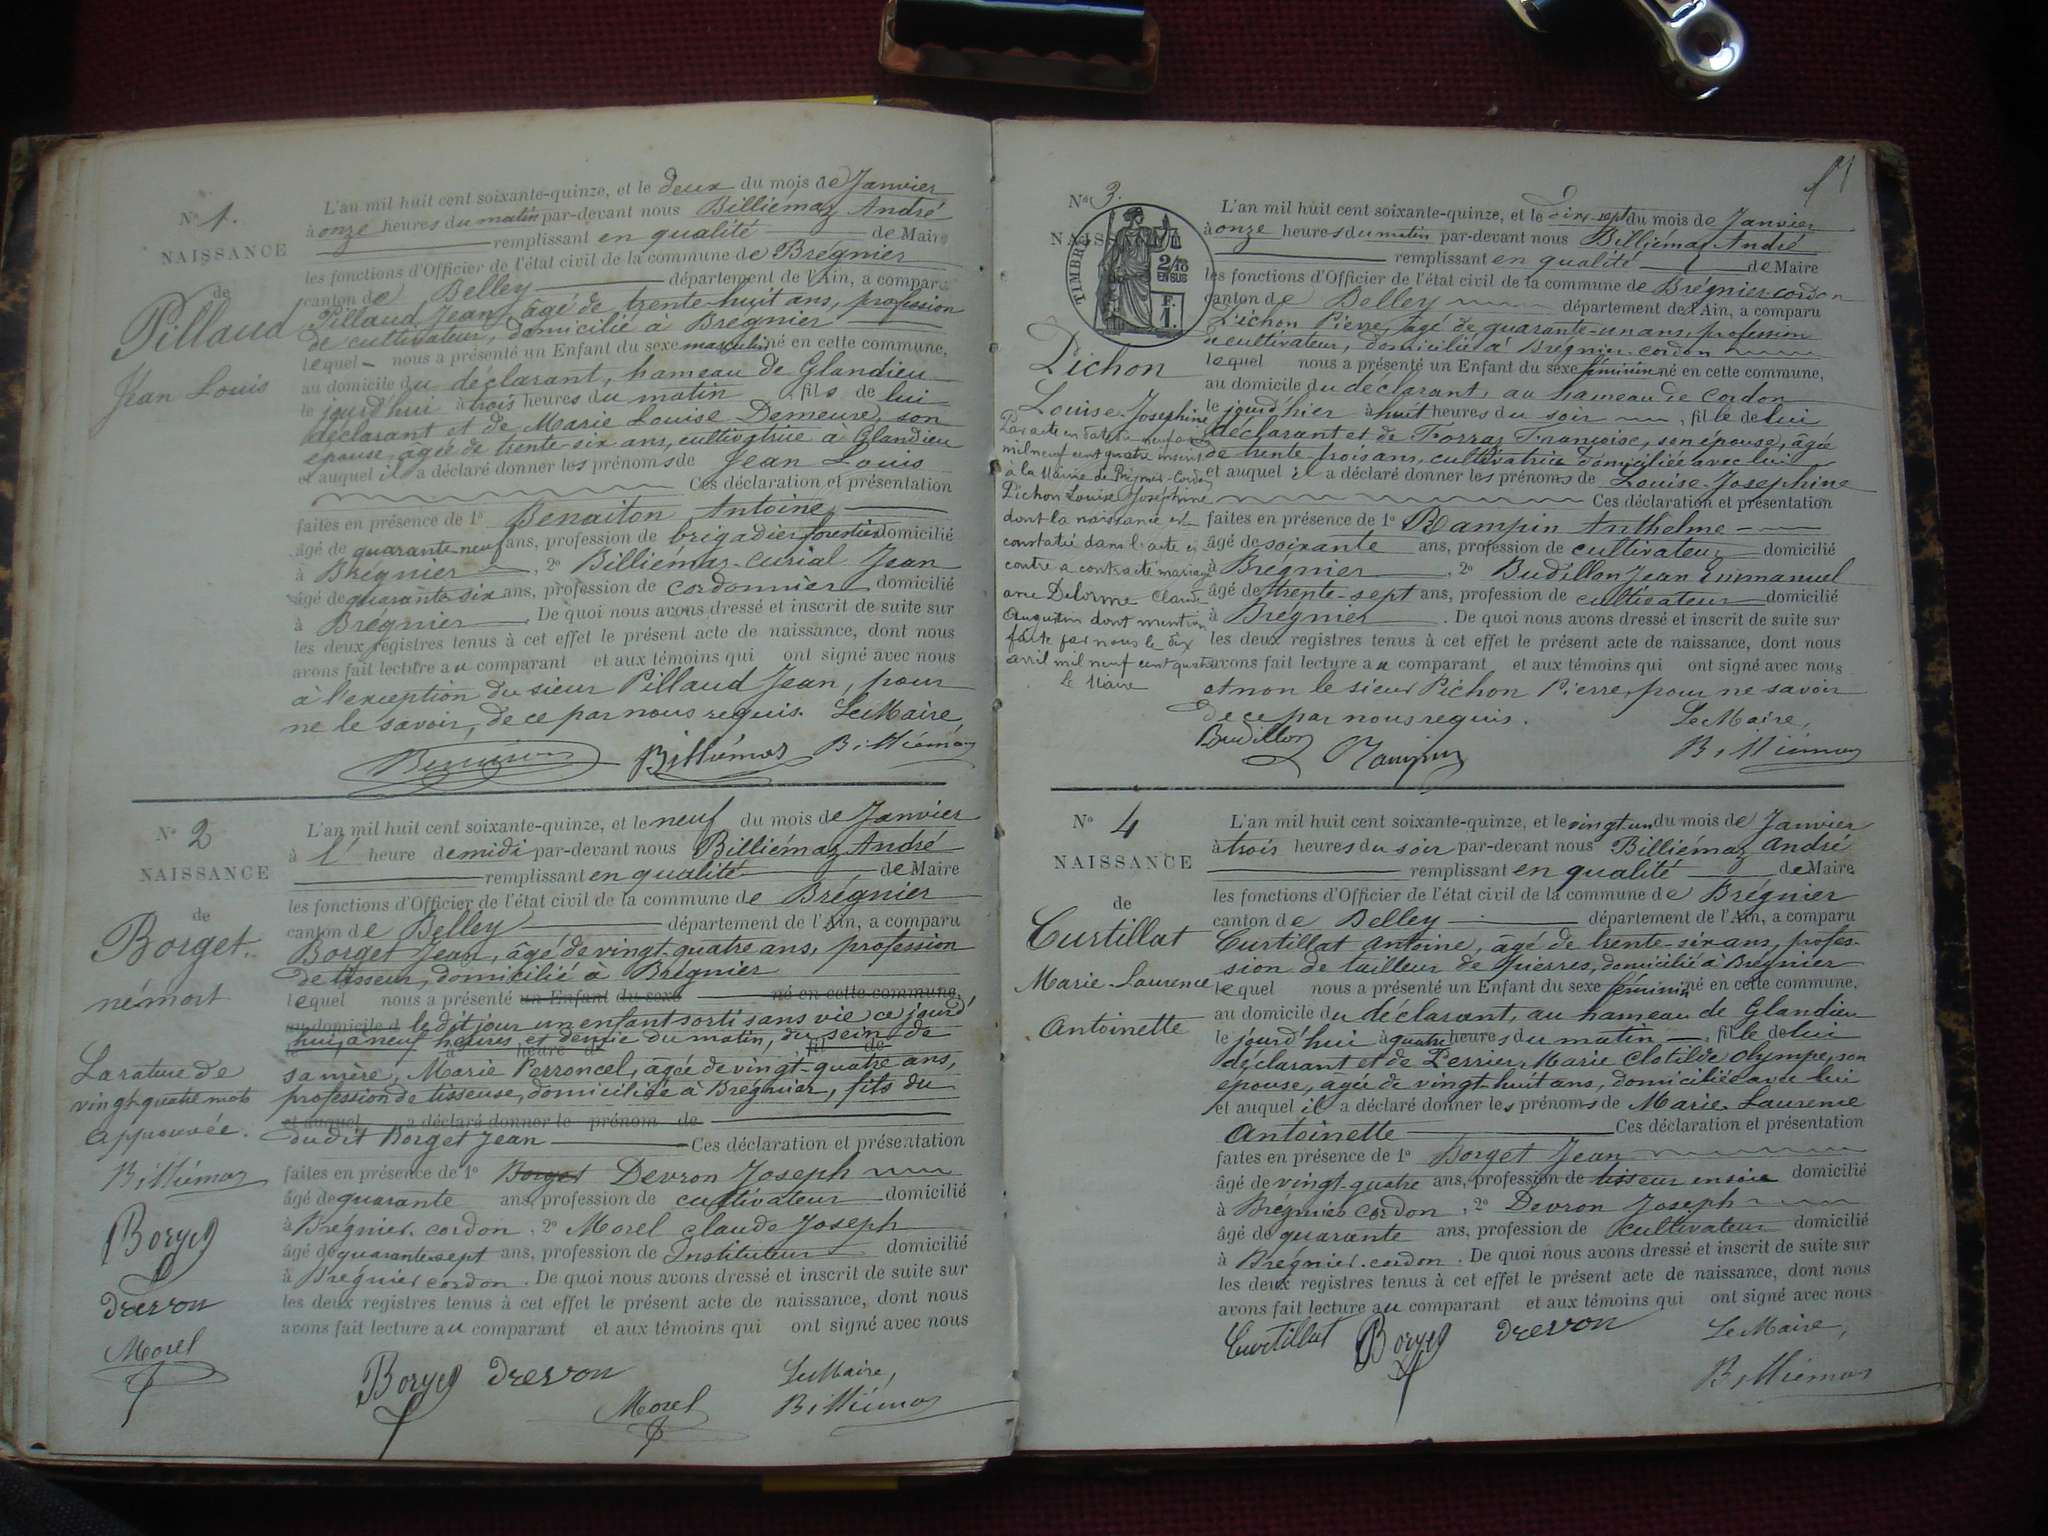 N° 1.
NAISSANCE
de
Pillaud
Jean Louis
L'an mil huit cent soixante-quinze, et le deux du mois de Janvier
à onze heures du matin par-devant nous Billiémaz André
remplissant en qualité de Maire
les fonctions d'Officier de l'état civil de la commune de Brégnier
canton de Belley département de l'Ain, a comparu
Pillaud Jean, âgé de trente-huit ans, profession
de cultivateur, domicilié à Brégnier
lequel nous a présenté un Enfant du sexe masculin né en cette commune,
au domicile du déclarant, hameau de Glandieu
le jourd'hui à trois heures du matin fils de lui
déclarant et de Marie Louise Demeure, son
épouse, âgée de trente-six ans, cultivatrice à Glandieu
et auquel il a déclaré donner les prénoms de Jean Louis
Ces déclaration et présentation
faites en présence de 1° Benaiton Antoine,
âgé de quarante-neuf ans, profession de brigadier forestier domicilié
à Brégnier, 2° Billiémaz-curial Jean
âgé de quarante-six ans, profession de cordonnier domicilié
à Brégnier. De quoi nous avons dressé et inscrit de suite sur
les deux registres tenus à cet effet le présent acte de naissance, dont nous
avons fait lecture au comparant et aux témoins qui ont signé avec nous
à l'exception du sieur Pillaud Jean, pour
ne le savoir, de ce par nous requis. Le Maire,
Billiémaz Billiémaz
N° 2
NAISSANCE
de
Borget.
né mort
La rature de
vingt-quatre mots
approuvée.
Billiémaz
Borget
Drevon
Morel
L'an mil huit cent soixante-quinze, et le neuf du mois de Janvier
à l' heure de midi par-devant nous Billiémaz André
remplissant en qualité de Maire
les fonctions d'Officier de l'état civil de la commune de Brégnier
canton de Belley département de l'Ain, a comparu
Borget Jean, âgé de vingt-quatre ans, profession
de tisseur, domicilié à Brégnier
lequel nous a présenté un Enfant du sexe né en cette commune,
au domicile d le dit jour un enfant sorti sans vie ce jourd'
hui, à neuf heures et demie du matin, du sein de
le à heure de fil de
sa mère, Marie Perroncel, âgée de vingt-quatre ans,
profession de tisseuse, domiciliée à Brégnier, fils du
et auquel a déclaré donner le prénom de
dudit Borget Jean Ces déclaration et présentation
faites en présence de 1° Borget Devron Joseph
âgé de quarante ans, profession de cultivateur domicilié
à Brégnier-cordon, 2° Morel claude Joseph
âgé de quarante-sept ans, profession de Instituteur domicilié
à Brégnier cordon. De quoi nous avons dressé et inscrit de suite sur
les deux registres tenus à cet effet le présent acte de naissance, dont nous
avons fait lecture au comparant et aux témoins qui ont signé avec nous
Borget Drevon Le Maire,
Morel Billiémaz
N° 3.
NAISSANCE
TIMBRE
2/10
EN SUS
Pichon
Louise-Josephine
Par acte en date du neuf avril
mil neuf cent quatre inscrit
à la Mairie de Brégnier-Cordon
Pichon Louise Joséphine
dont la naissance est
constatée dans l'acte ci
contre a contracté mariage
avec Delorme Claude
Augustin dont mention
faite par nous le dix
avril mil neuf cent quatre
Le Maire
L'an mil huit cent soixante-quinze, et le dix-sept du mois de Janvier
à onze heures du matin par-devant nous Billiémaz André
remplissant en qualité de Maire
les fonctions d'Officier de l'état civil de la commune de Brégnier-cordon
canton de Belley département de l'Ain, a comparu
Pichon Pierre, âgé de quarante-un ans, profession
de cultivateur, domicilié à Brégnier-cordon
lequel nous a présenté un Enfant du sexe féminin né en cette commune,
au domicile du déclarant, au hameau de cordon
le jourd'hier à huit heures du soir, fille de lui
déclarant et de Forraz Françoise, son épouse, âgée
de trente-trois ans, cultivatrice domiciliée avec lui
et auquel il a déclaré donner les prénoms de Louise-Josephine
Ces déclaration et présentation
faites en présence de 1° Rampin Anthelme
âgé de soixante ans, profession de cultivateur domicilié
à Brégnier, 2° Budillon Jean Emmanuel
âgé de trente-sept ans, profession de cultivateur domicilié
à Brégnier. De quoi nous avons dressé et inscrit de suite sur
les deux registres tenus à cet effet le présent acte de naissance, dont nous
avons fait lecture au comparant et aux témoins qui ont signé avec nous
et non le sieur Pichon Pierre, pour ne savoir
de ce par nous requis. Le Maire,
Budillon Rampin Billiémaz
N° 4
NAISSANCE
de
Curtillat
Marie-Laurence
Antoinette
L'an mil huit cent soixante-quinze, et le vingt-un du mois de Janvier
à trois heures du soir par-devant nous Billiémaz André
remplissant en qualité de Maire
les fonctions d'Officier de l'état civil de la commune de Brégnier
canton de Belley département de l'Ain, a comparu
Curtillat Antoine, âgé de trente-six ans, profes-
sion de tailleur de pierres, domicilié à Brégnier
lequel nous a présenté un Enfant du sexe féminin né en cette commune,
au domicile du déclarant, au hameau de Glandieu
le jourd'hui à quatre heures du matin, fille de lui
déclarant et de Perrier Marie Clotilde Olympe, son
épouse, âgée de vingt-huit ans, domiciliée avec lui
et auquel il a déclaré donner les prénoms de Marie-Laurence
Antoinette Ces déclaration et présentation
faites en présence de 1° Borget Jean
âgé de vingt-quatre ans, profession de tisseur en soie domicilié
à Brégnier cordon, 2° Devron Joseph
âgé de quarante ans, profession de cultivateur domicilié
à Brégnier-cordon. De quoi nous avons dressé et inscrit de suite sur
les deux registres tenus à cet effet le présent acte de naissance, dont nous
avons fait lecture au comparant et aux témoins qui ont signé avec nous
Curtillat Borget Drevon Le Maire,
Billiémaz